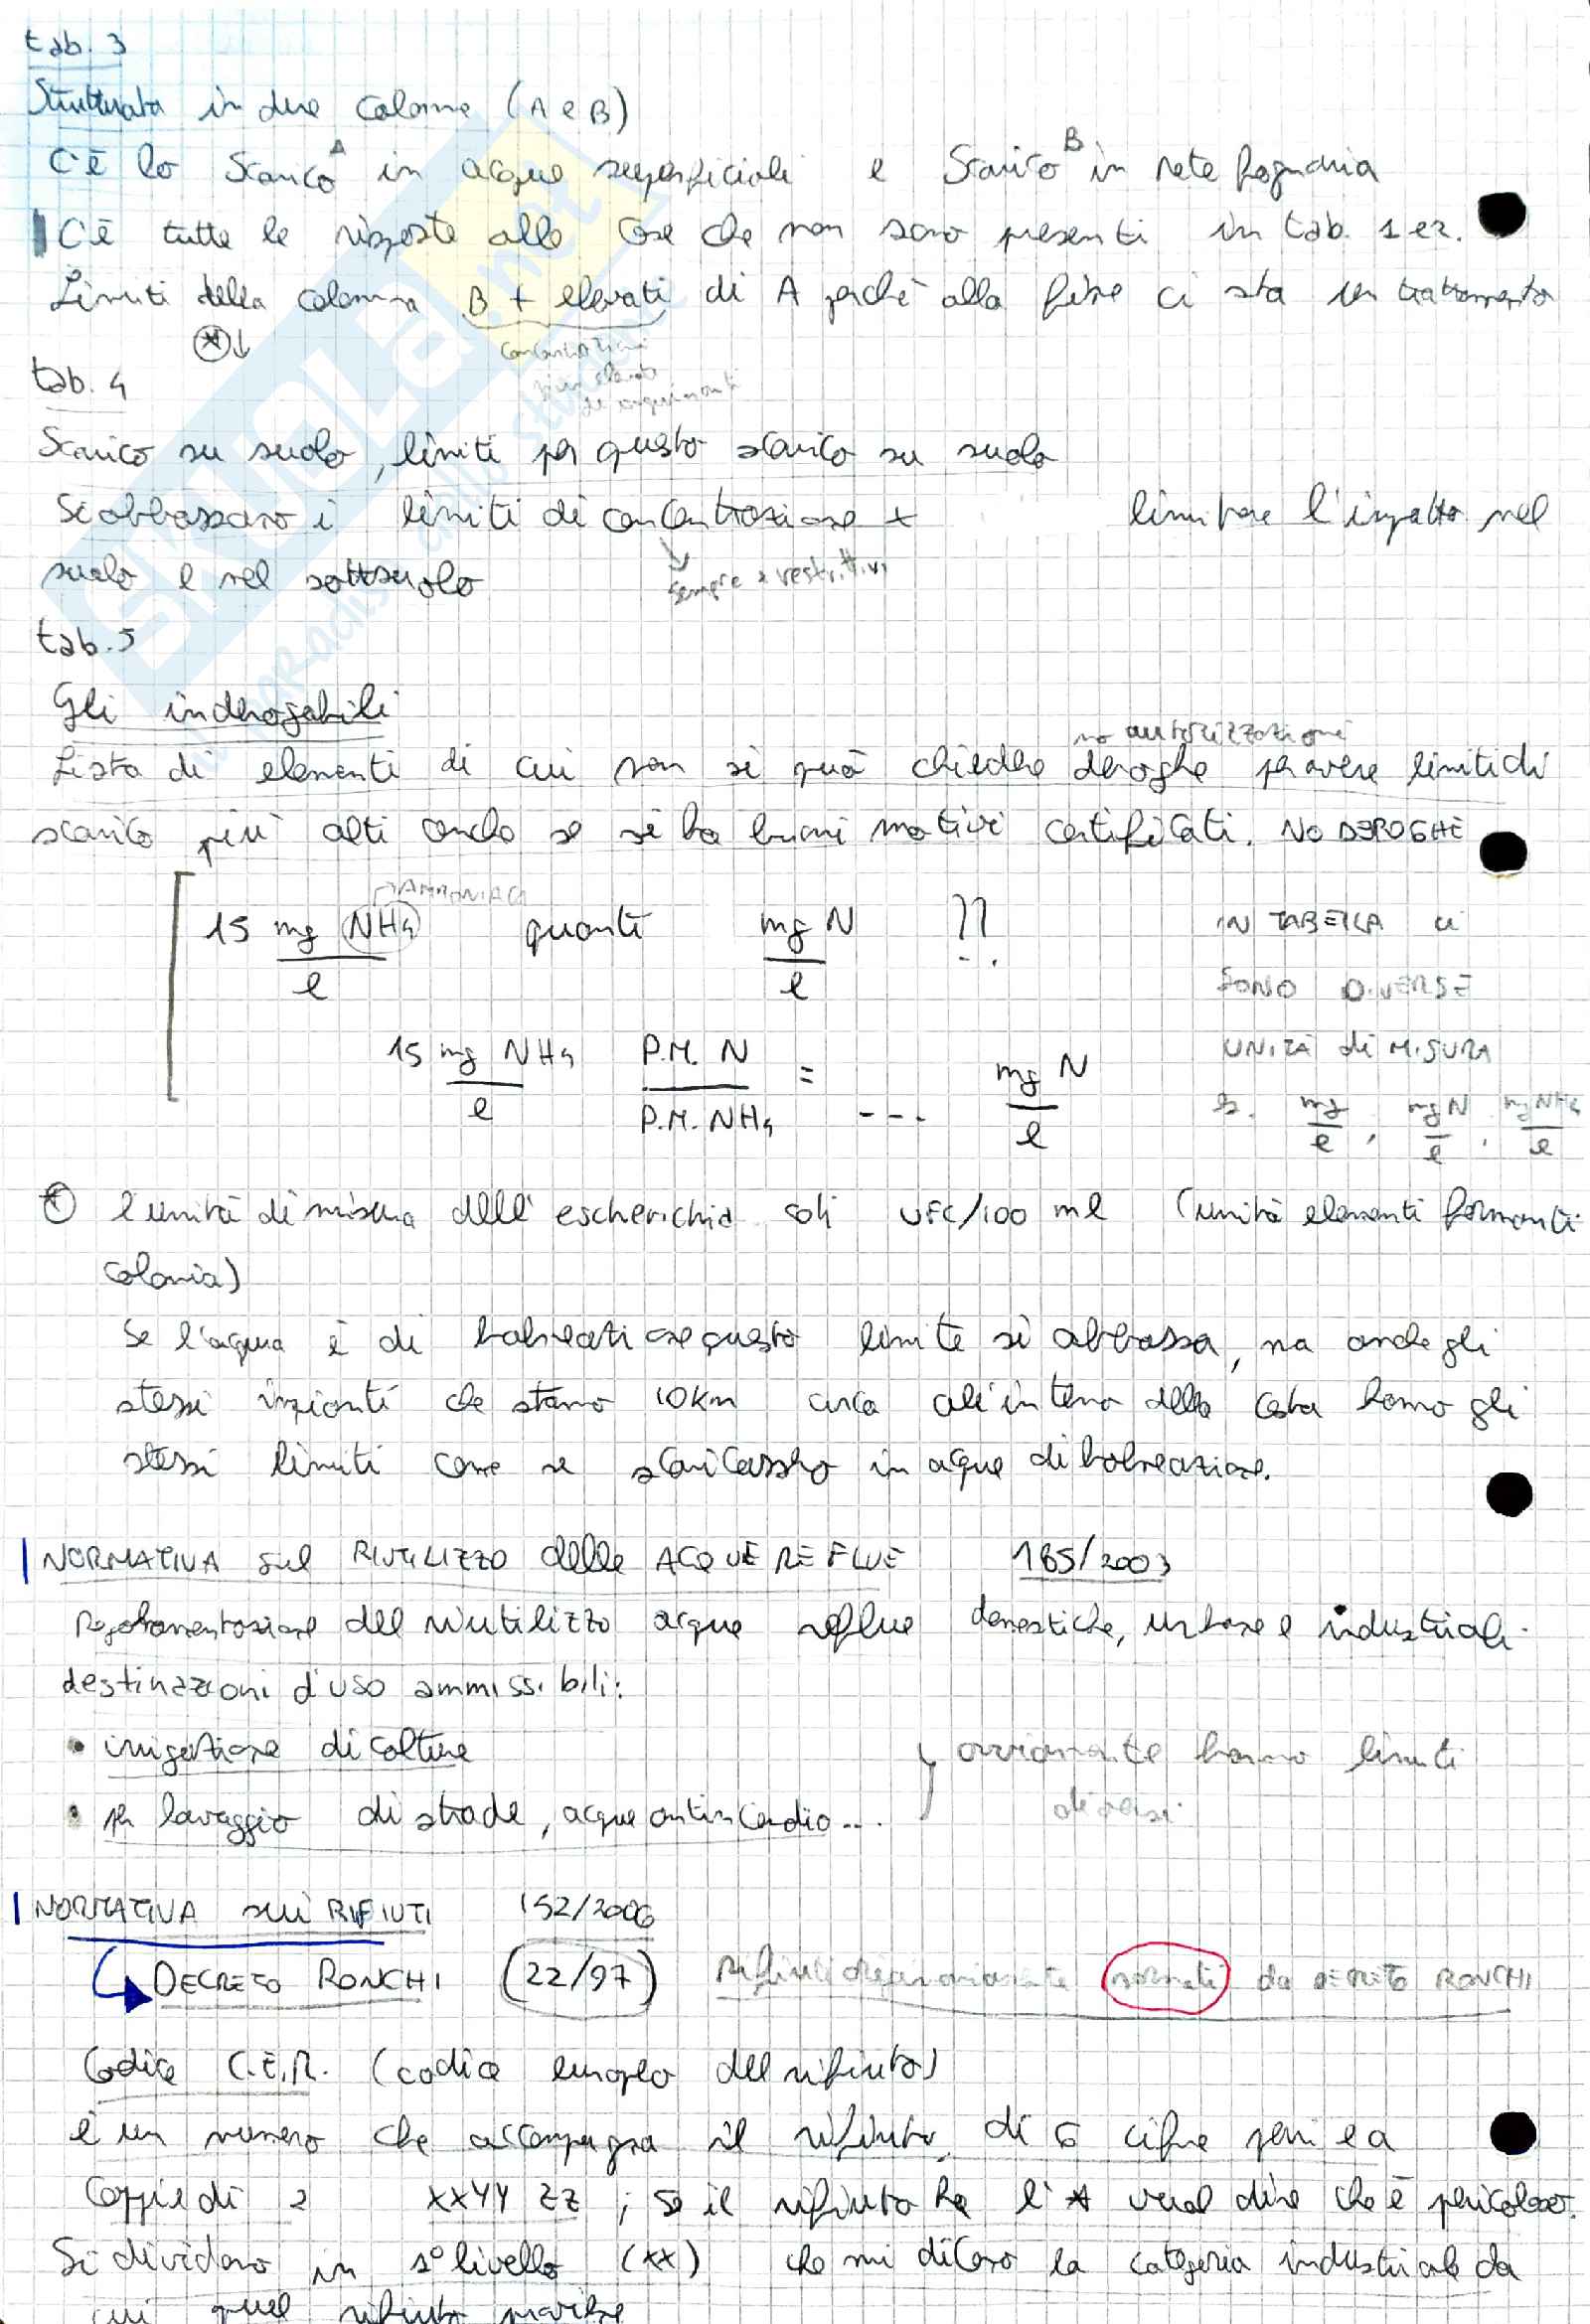 tab. 3
Strutturata in due colonne (A e B)
C'è lo scarico A in acque superficiali e scarico B in rete fognaria
C'è tutte le risposte alle cose che non sono presenti in tab. 1 e 2.
Limiti della colonna B + elevati di A perchè alla fine ci sta un trattamento
* ↓ concentrazioni
tab. 4 più elevate
di inquinanti
Scarico su suolo, limiti per questo scarico su suolo
Si abbassano i limiti di concentrazione x limitare l'impatto nel
suolo e nel sottosuolo sempre + restrittivi
tab. 5
Gli inderogabili
no autorizzazioni
Lista di elementi di cui non si può chiedere deroghe per avere limiti di
scarico più alti anche se si ha buoni motivi certificati. NO DEROGHE
→ AMMONIACA
15 mg NH4 / l quanti mg N / l ?? IN TABELLA ci
SONO DIVERSE
15 mg NH4 / l P.M. N / P.M. NH4 = --- mg N / l UNITÀ di MISURA
es. mg / l , mg N / l , mg NH4 / l
* l'unità di misura dell'escherichia coli UFC/100 ml (unità elementi formanti
colonia)
Se l'acqua è di balneazione questo limite si abbassa, ma anche gli
stessi impianti che stanno 10 km circa all'interno della costa hanno gli
stessi limiti come se scaricassero in acque di balneazione.
NORMATIVA sul RIUTILIZZO delle ACQUE REFLUE 185/2003
Regolamentazione del riutilizzo acque reflue domestiche, urbane e industriali.
destinazioni d'uso ammissibili:
• irrigazione di colture ovviamente hanno limiti
• per lavaggio di strade, acque antincendio... diversi
NORMATIVA sui RIFIUTI 152/2006
DECRETO RONCHI (22/97) Rifiuti normati da DECRETO RONCHI
Codice C.E.R. (codice europeo del rifiuto)
è un numero che accompagna il rifiuto, di 6 cifre presi e a
coppie di 2 XXYY ZZ ; se il rifiuto ha l'* vuol dire che è pericoloso.
Si dividono in 1° livello (XX) che mi dicono la categoria industriale da
cui quel rifiuto